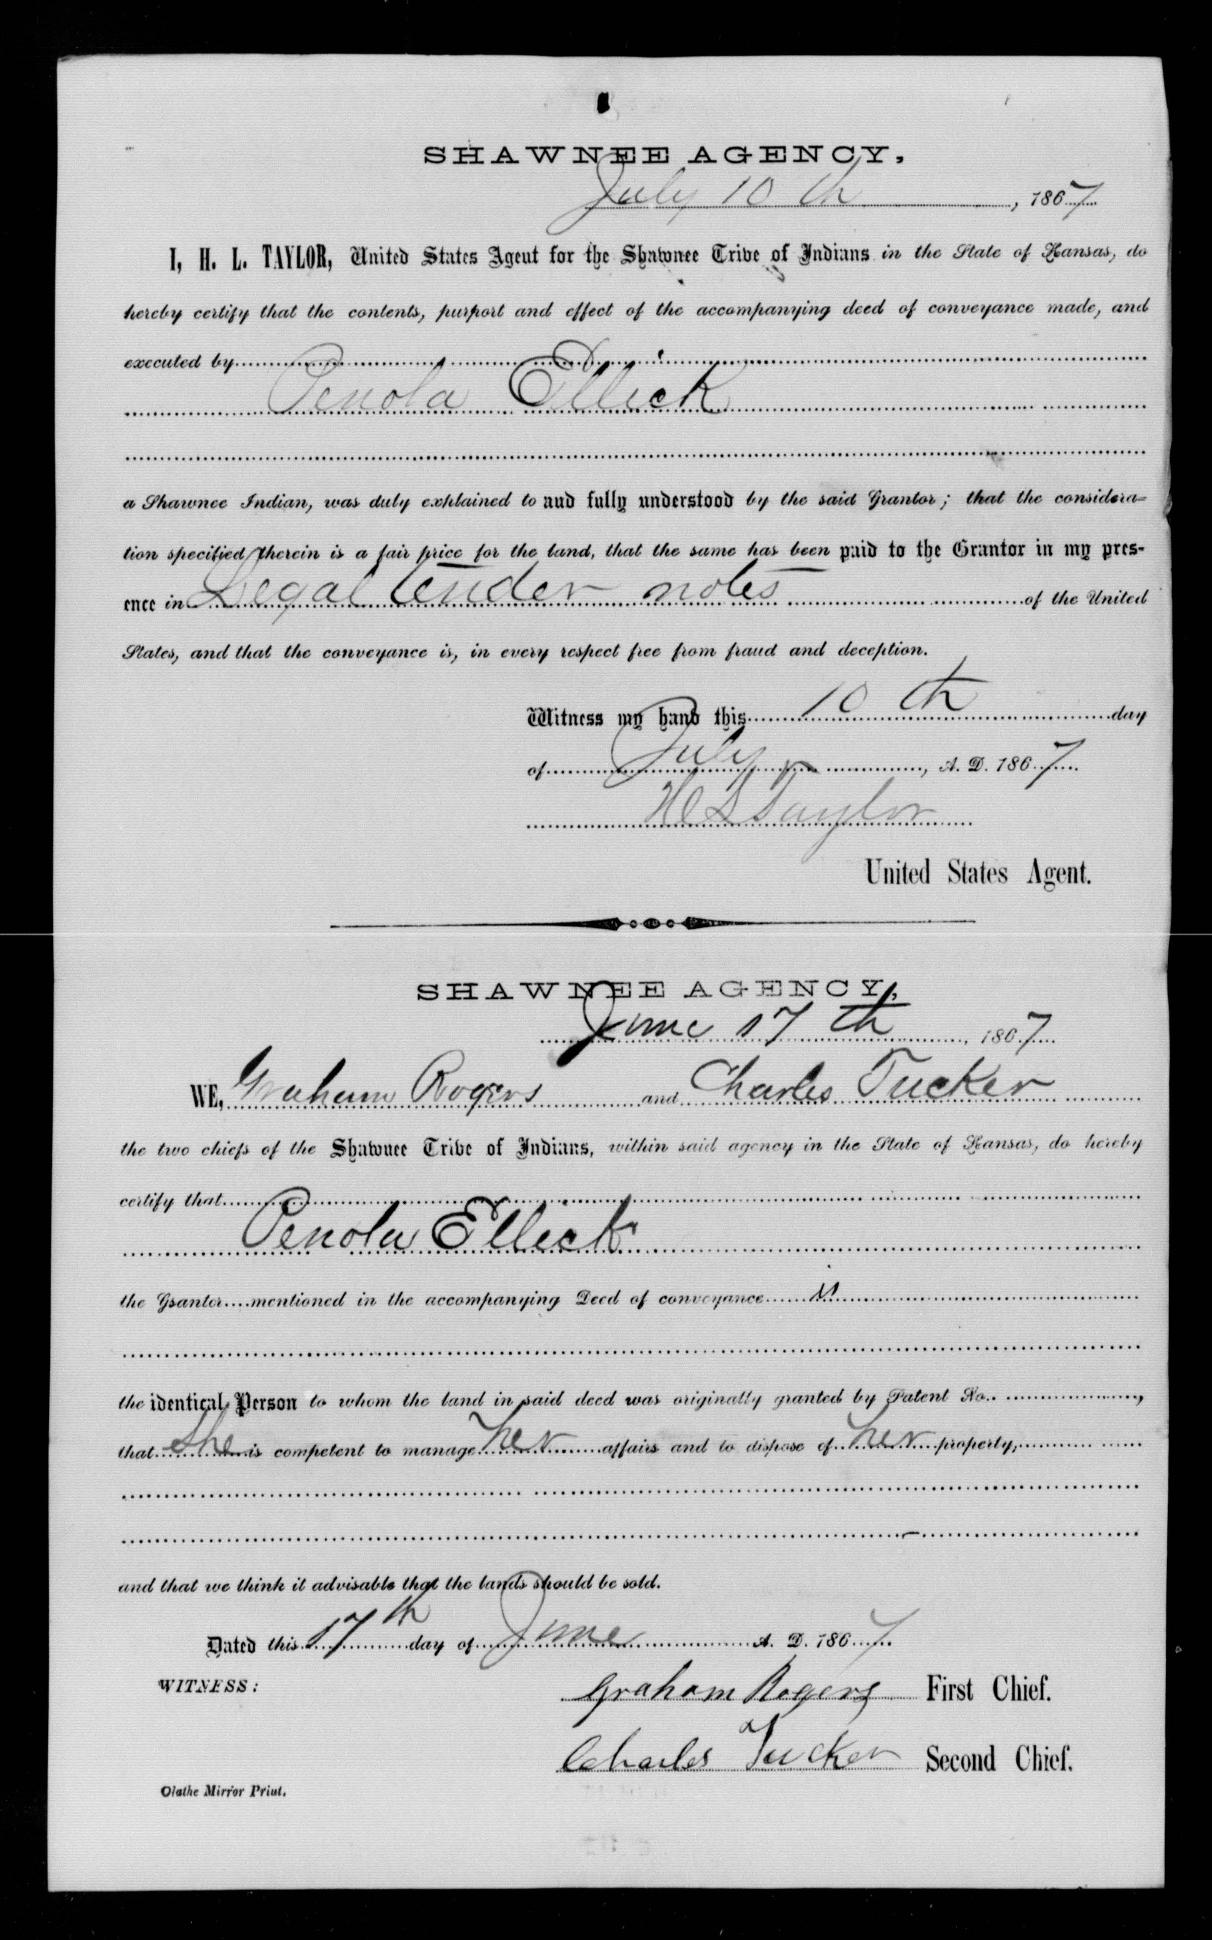 SHAWNEE AGENCY,
July 10th, 1867
I, H. L. TAYLOR, United States Agent for the Shawnee Tribe of Indians in the State of Kansas, do
hereby certify that the contents, purport and effect of the accompanying deed of conveyance made, and
executed by
Penola Ellick
a Shawnee Indian, was duly explained to and fully understood by the said Grantor; that the considera-
tion specified therein is a fair price for the land, that the same has been paid to the Grantor in my pres-
ence in Legal tender notes of the United
States, and that the conveyance is, in every respect free from fraud and deception.
Witness my hand this 10th day
of July, A. D. 1867
H L Taylor
United States Agent.
SHAWNEE AGENCY,
June 17th, 1867
WE, Graham Rogers and Charles Tucker
the two chiefs of the Shawnee Tribe of Indians, within said agency in the State of Kansas, do hereby
certify that
Penola Ellick
the Gsantor mentioned in the accompanying Deed of conveyance is
the identical Person to whom the land in said deed was originally granted by Patent No. ,
that She is competent to manage her affairs and to dispose of her property,
and that we think it advisable that the lands should be sold.
Dated this 17th day of June A. D. 1867
WITNESS:
Graham Rogers First Chief.
Charles Tucker Second Chief.
Olathe Mirror Print.